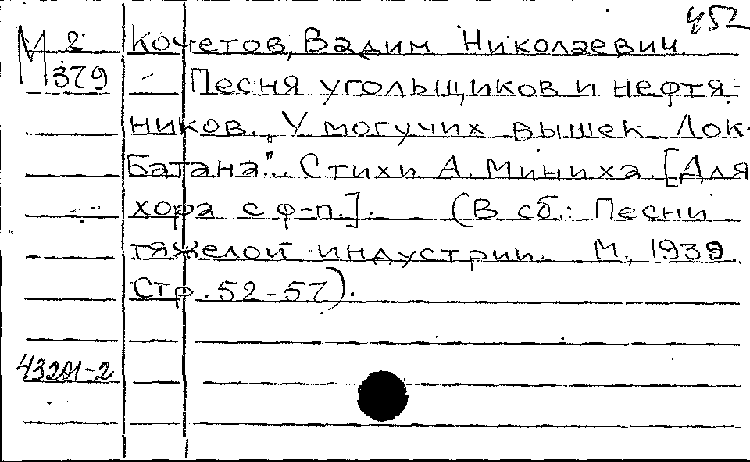 452
М 2
379
Кочетов, Вадим Николаевич
Песня угольщиков и нефтя-
ников. „У могучих вышек Лок-
Батана". Стихи А. Миниха. [Для
хора с ф-п.]. (В сб.: Песни
тяжелой индустрии. М, 1939.
Стр. 52-57).
43201-2